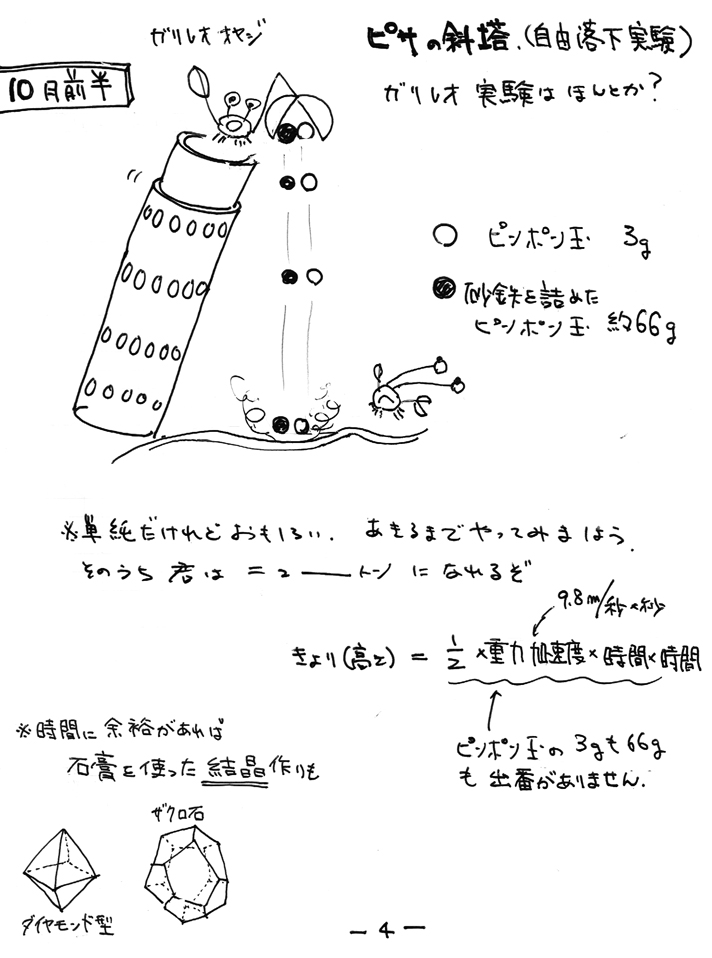 ガリレオオヤジ
ピサの斜塔.(自由落下実験)
10月前半
ガリレオ実験はほんとか?
○ ピンポン玉 3g
● 砂鉄を詰めた
ピンポン玉 約66g
※単純だけれどおもしろい. あきるまでやってみましょう.
そのうち君はニュ――トンになれるぞ
9.8m/秒×秒
きょり(高さ) = 1/2 ×重力加速度×時間×時間
ピンポン玉の3gも66g
も出番がありません.
※時間に余裕があれば
石膏を使った結晶作りも
ザクロ石
ダイヤモンド型
－4－